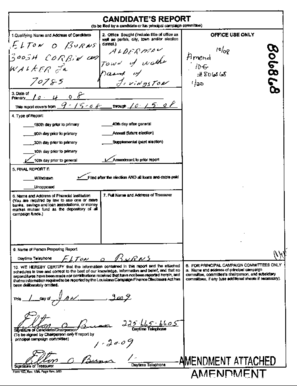 CANDIDATE'S REPORT
(to be filed by a candidate or his principal campaign committee)
1. Qualifying Name and Address of Candidate
ELTON O BURNS
30054 CORBIN
WALKER La
70785
2. Office Sought (Include title of office as well as parish, city, town and/or election district.)
ALDERMAN
Town of Walker
Parish of
Livingston
OFFICE USE ONLY
10/08
Amend
806868
3. Date of Primary 10 4 08
This report covers from 9-15-08 through 10-15-08
4. Type of Report
180th day prior to primary
40th day after general
90th day prior to primary
Annual (future election)
30th day prior to primary
Supplemental (past election)
10th day prior to primary
10th day prior to general
Amendment to prior report
5. FINAL REPORT if:
Withdrawn
Filed after the election AND all loans and debts paid
Unopposed
6. Name and Address of Financial Institution
(You are required by law to use one or more banks, savings and loan associations, or money market mutual fund as the depository of all campaign funds.)
7. Full Name and Address of Treasurer
9. Name of Person Preparing Report
Daytime Telephone ELTON O BURNS
10. WE HEREBY CERTIFY that the information contained in this report and the attached schedules is true and correct to the best of our knowledge, information and belief, and that no expenditures have been made nor contributions received that have not been reported herein, and that no information required to be reported by the Louisiana Campaign Finance Disclosure Act has been deliberately omitted.
8. FOR PRINCIPAL CAMPAIGN COMMITTEES ONLY
a. Name and address of principal campaign committee, committee's chairperson, and subsidiary committees, if any (use additional sheets if necessary).
This 1 day of JAN 2009
Elton O Burns 225 665-6605
Signature of Candidate/Chairperson
Daytime Telephone
(To be signed by Chairperson only if report by principal campaign committee)
1-2009
Elton O Burns
Signature of Treasurer
Daytime Telephone
AMENDMENT ATTACHED
AMENDMENT